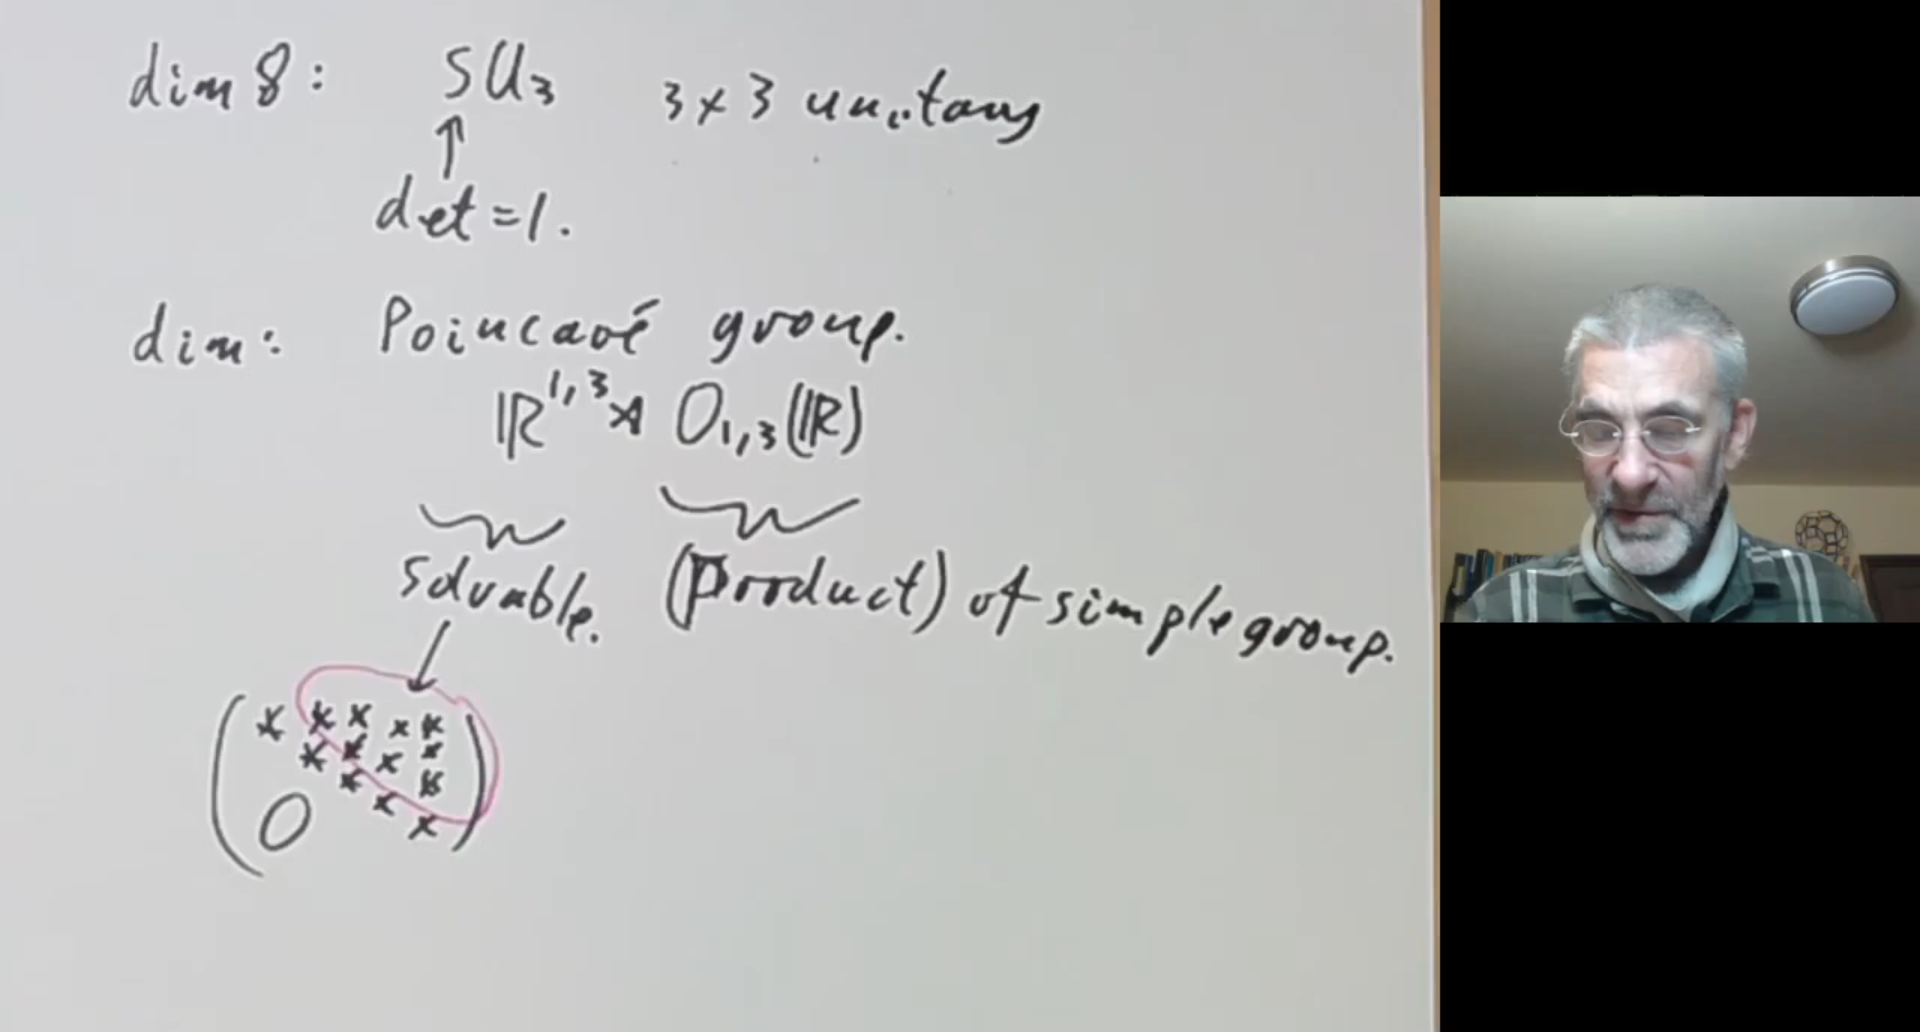 dim 8: SU₃ 3×3 unitary
↑
det=1.
dim: Poincaré group.
ℝ^{1,3} ⋊ O_{1,3}(ℝ)
solvable. (Product) of simple group.
( * * * * *
* * * *
* * *
0 * *
* )